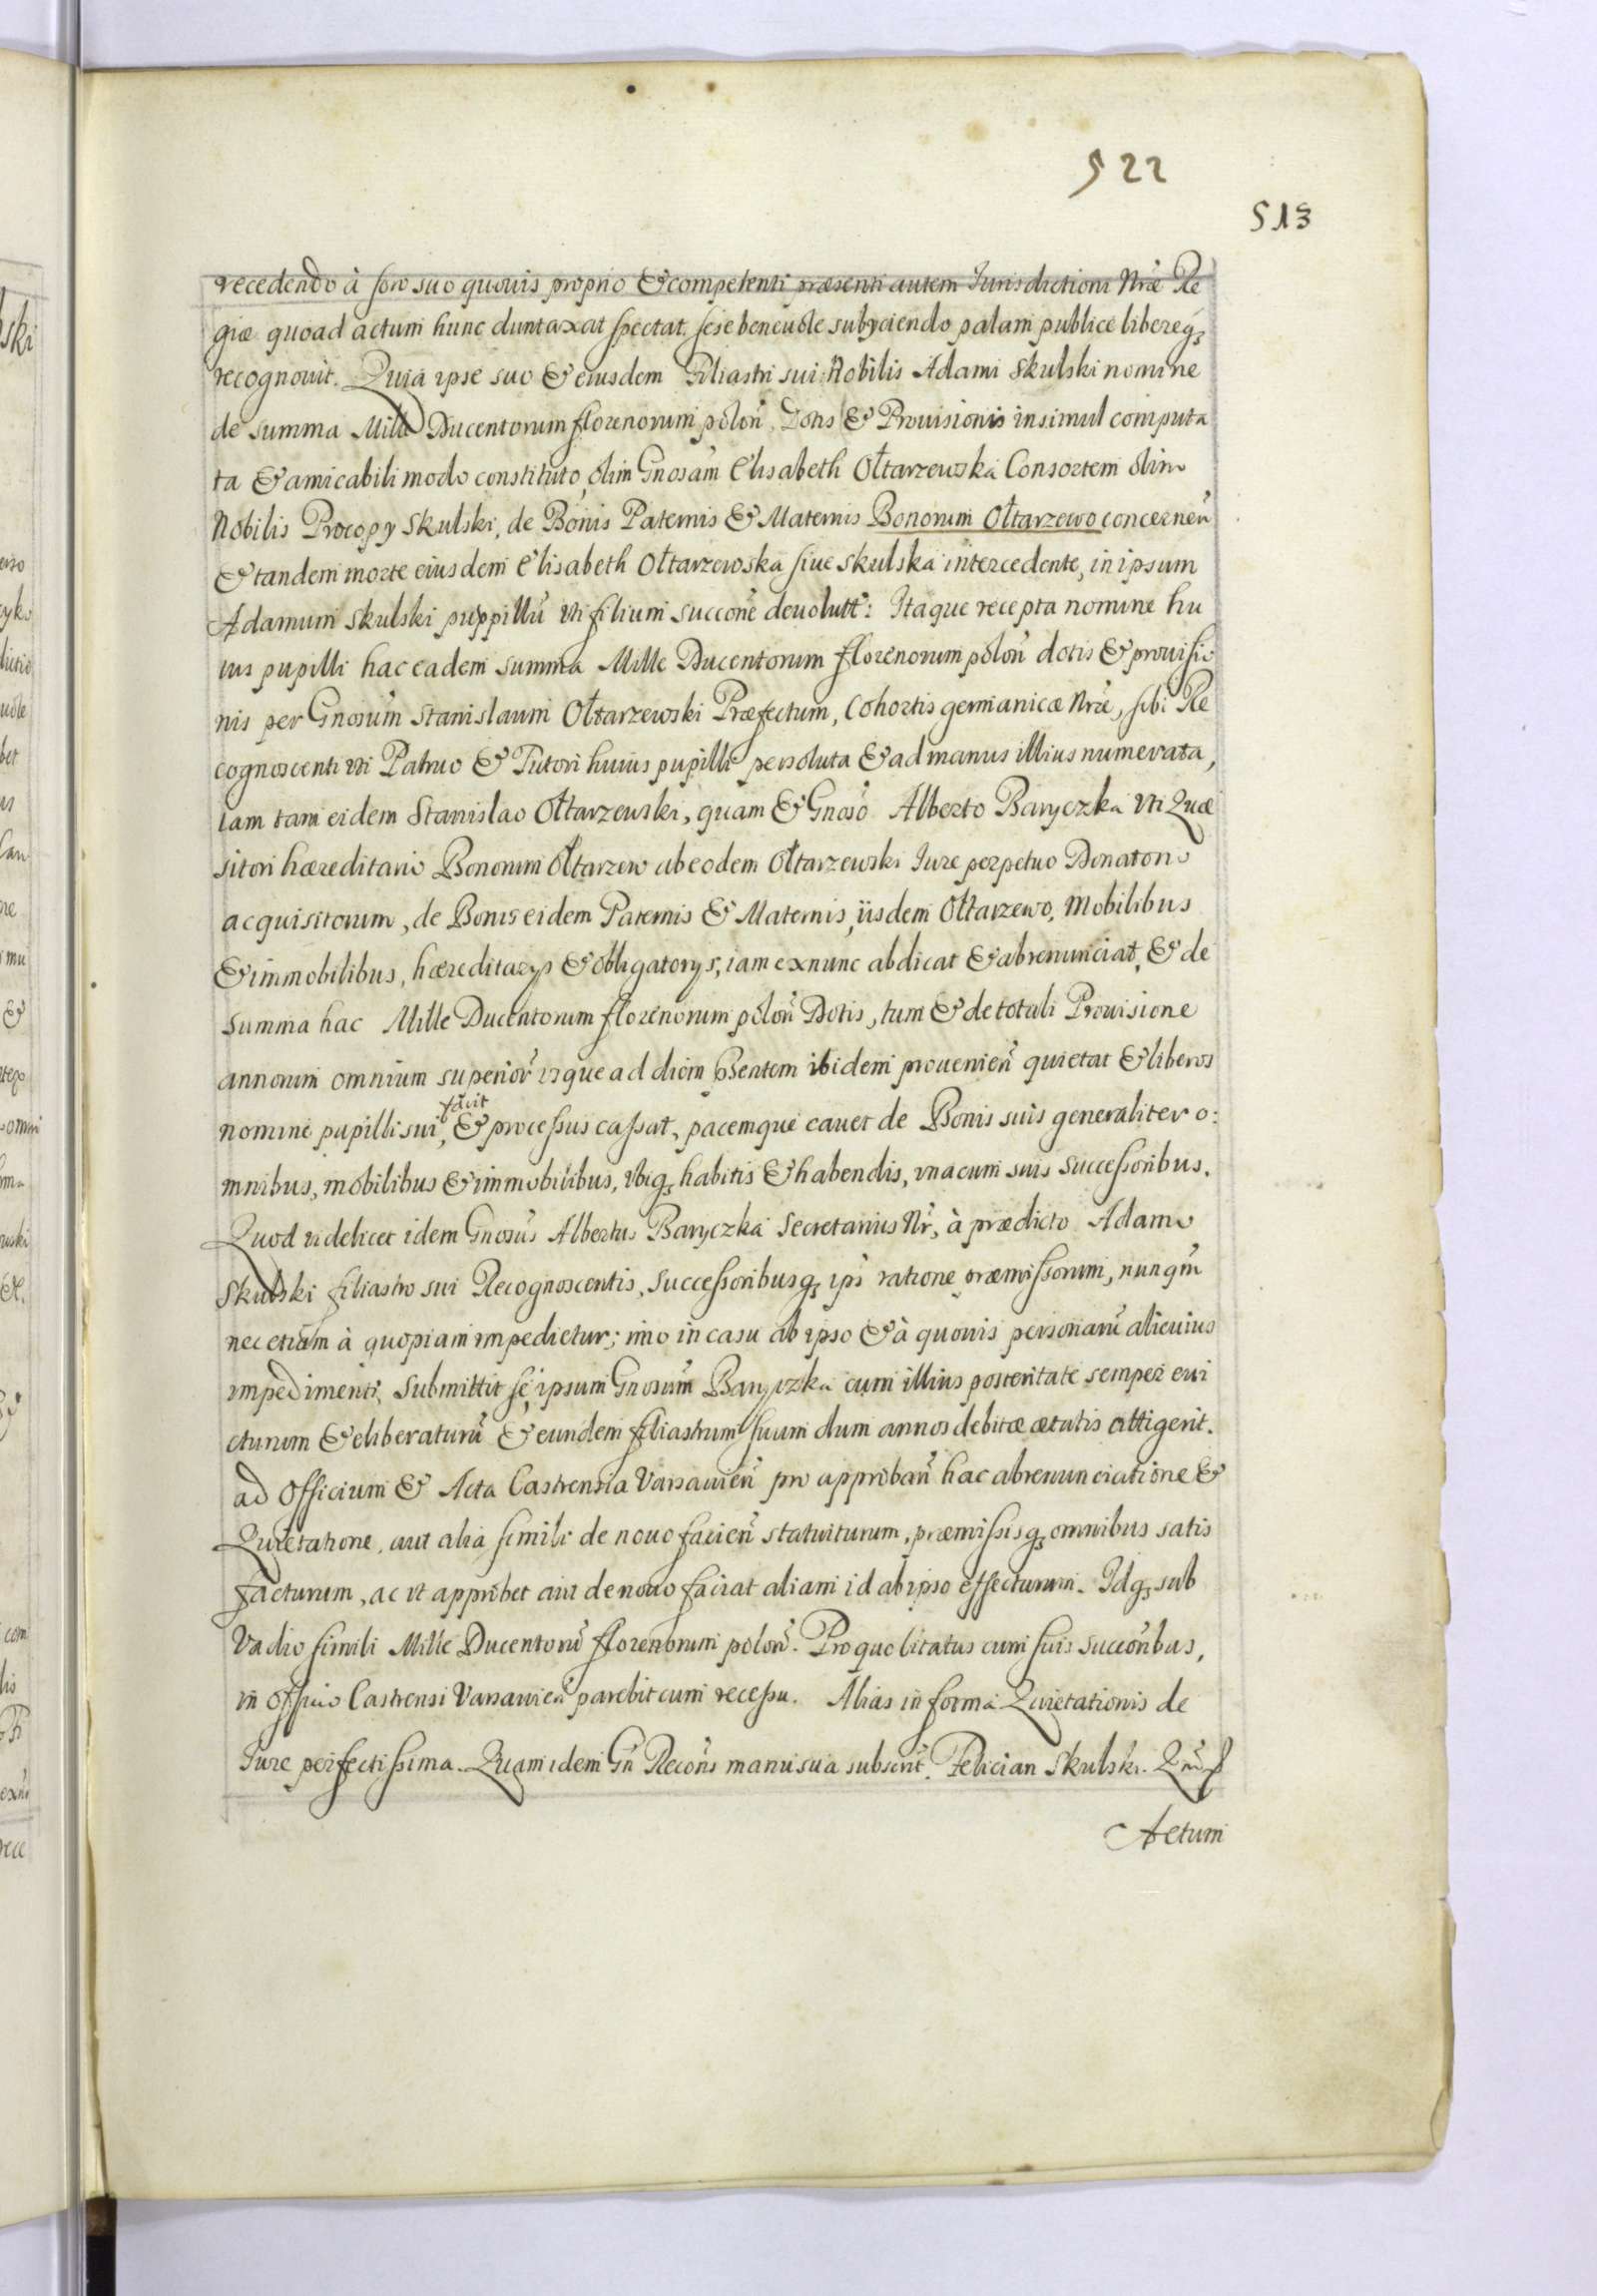 522
513
recedendo à foro suo quouis proprio & competenti præsenti autem Jurisdictioni Nræ Re
giæ quoad actum hunc duntaxat spectat sese beneuole subyciendo palam publicè libereq;
recognouit. Quia ipse suo & eiusdem Filiastri sui Nobilis Adami Skulski nomine
de summa Mille Ducentorum florenorum polon̄. Dotis & Prouisionis insimul computa
ta & amicabili modo constituto, olim Gnosam Elisabeth Ołtarzewska Consortem olim
Nobilis Procopy Skulski, de Bonis Paternis & Maternis Bonorum Ołtarzewo concernen̄
& tandem morte eiusdem Elisabeth Ołtarzewska siue Skulska intercedente, in ipsum
Adamum Skulski puppillū vti filium succone deuolutt: Itaque recepta nomine hu
ius pupilli hac eadem summa Mille Ducentorum florenorum polon̄ dotis & prouisio
nis per Gnosum Stanislaum Ołtarzewski Præfectum, Cohortis germanicæ Nræ, sibi Re
cognoscenti vti Patruo & Tutori huius pupilli persoluta & ad manus illius numerata,
iam tam eidem Stanislao Ołtarzewski, quam & Gnoso Alberto Baryczka vti Quæ
sitori hæreditario Bonorum Ołtarzew ab eodem Ołtarzewski Jure perpetuo Donatorio
acquisitorum, de Bonis eidem Paternis & Maternis, iisdem Ołtarzewo, Mobilibus
& immobilibus, hæreditarys & obligatorys, iam ex nunc abdicat & abrenunciat, & de
summa hac Mille Ducentorum florenorum polon̄ Dotis, tum & de totali Prouisione
annorum omnium superior̄ vsque ad diem pſentem ibidem prouenien̄ quietat & liberos
facit
nomine pupilli sui, & processus cassat, pacemque cauet de Bonis suis generaliter o:
mnibus, mobilibus & immobilibus, vbiq; habitis & habendis, vna cum suis successoribus.
Quod videlicet idem Gnosus Albertus Baryczka Secretarius Nr, à prædicto Adamo
Skulski filiastro sui Recognoscentis, successoribusq; ips̄ ratione præmissorum, nunqm̄
nec etiam à quopiam impedietur; imo in casu ab ipso & à quouis personarū alicuius
impedimenti, submittit se ipsum Gnosum Baryczka cum illius posteritate semper eui
cturum & eliberaturū & eundem filiastrum suum dum annos debitæ ætatis attigerit.
ad Officium & Acta Castrensia Varsauien̄ pro approban̄ hac abrenunciatione &
Quietatione, aut alia simili de nouo facien̄ statuiturum, præmissisq; omnibus satis
facturum, ac vt approbet aut de nouo faciat aliam id ab ipso effecturum. Idq; sub
Vadio simili Mille Ducentorū florenorum polon̄. Pro quo litatus cum suis succoribus,
in officio Castrensi Varsauien̄ parebit cum recessu. Alias in forma Quietationis de
Jure perfectissima. Quam idem Gn̄ Recōns manu sua subscrit. Felician Skulski.
Actum